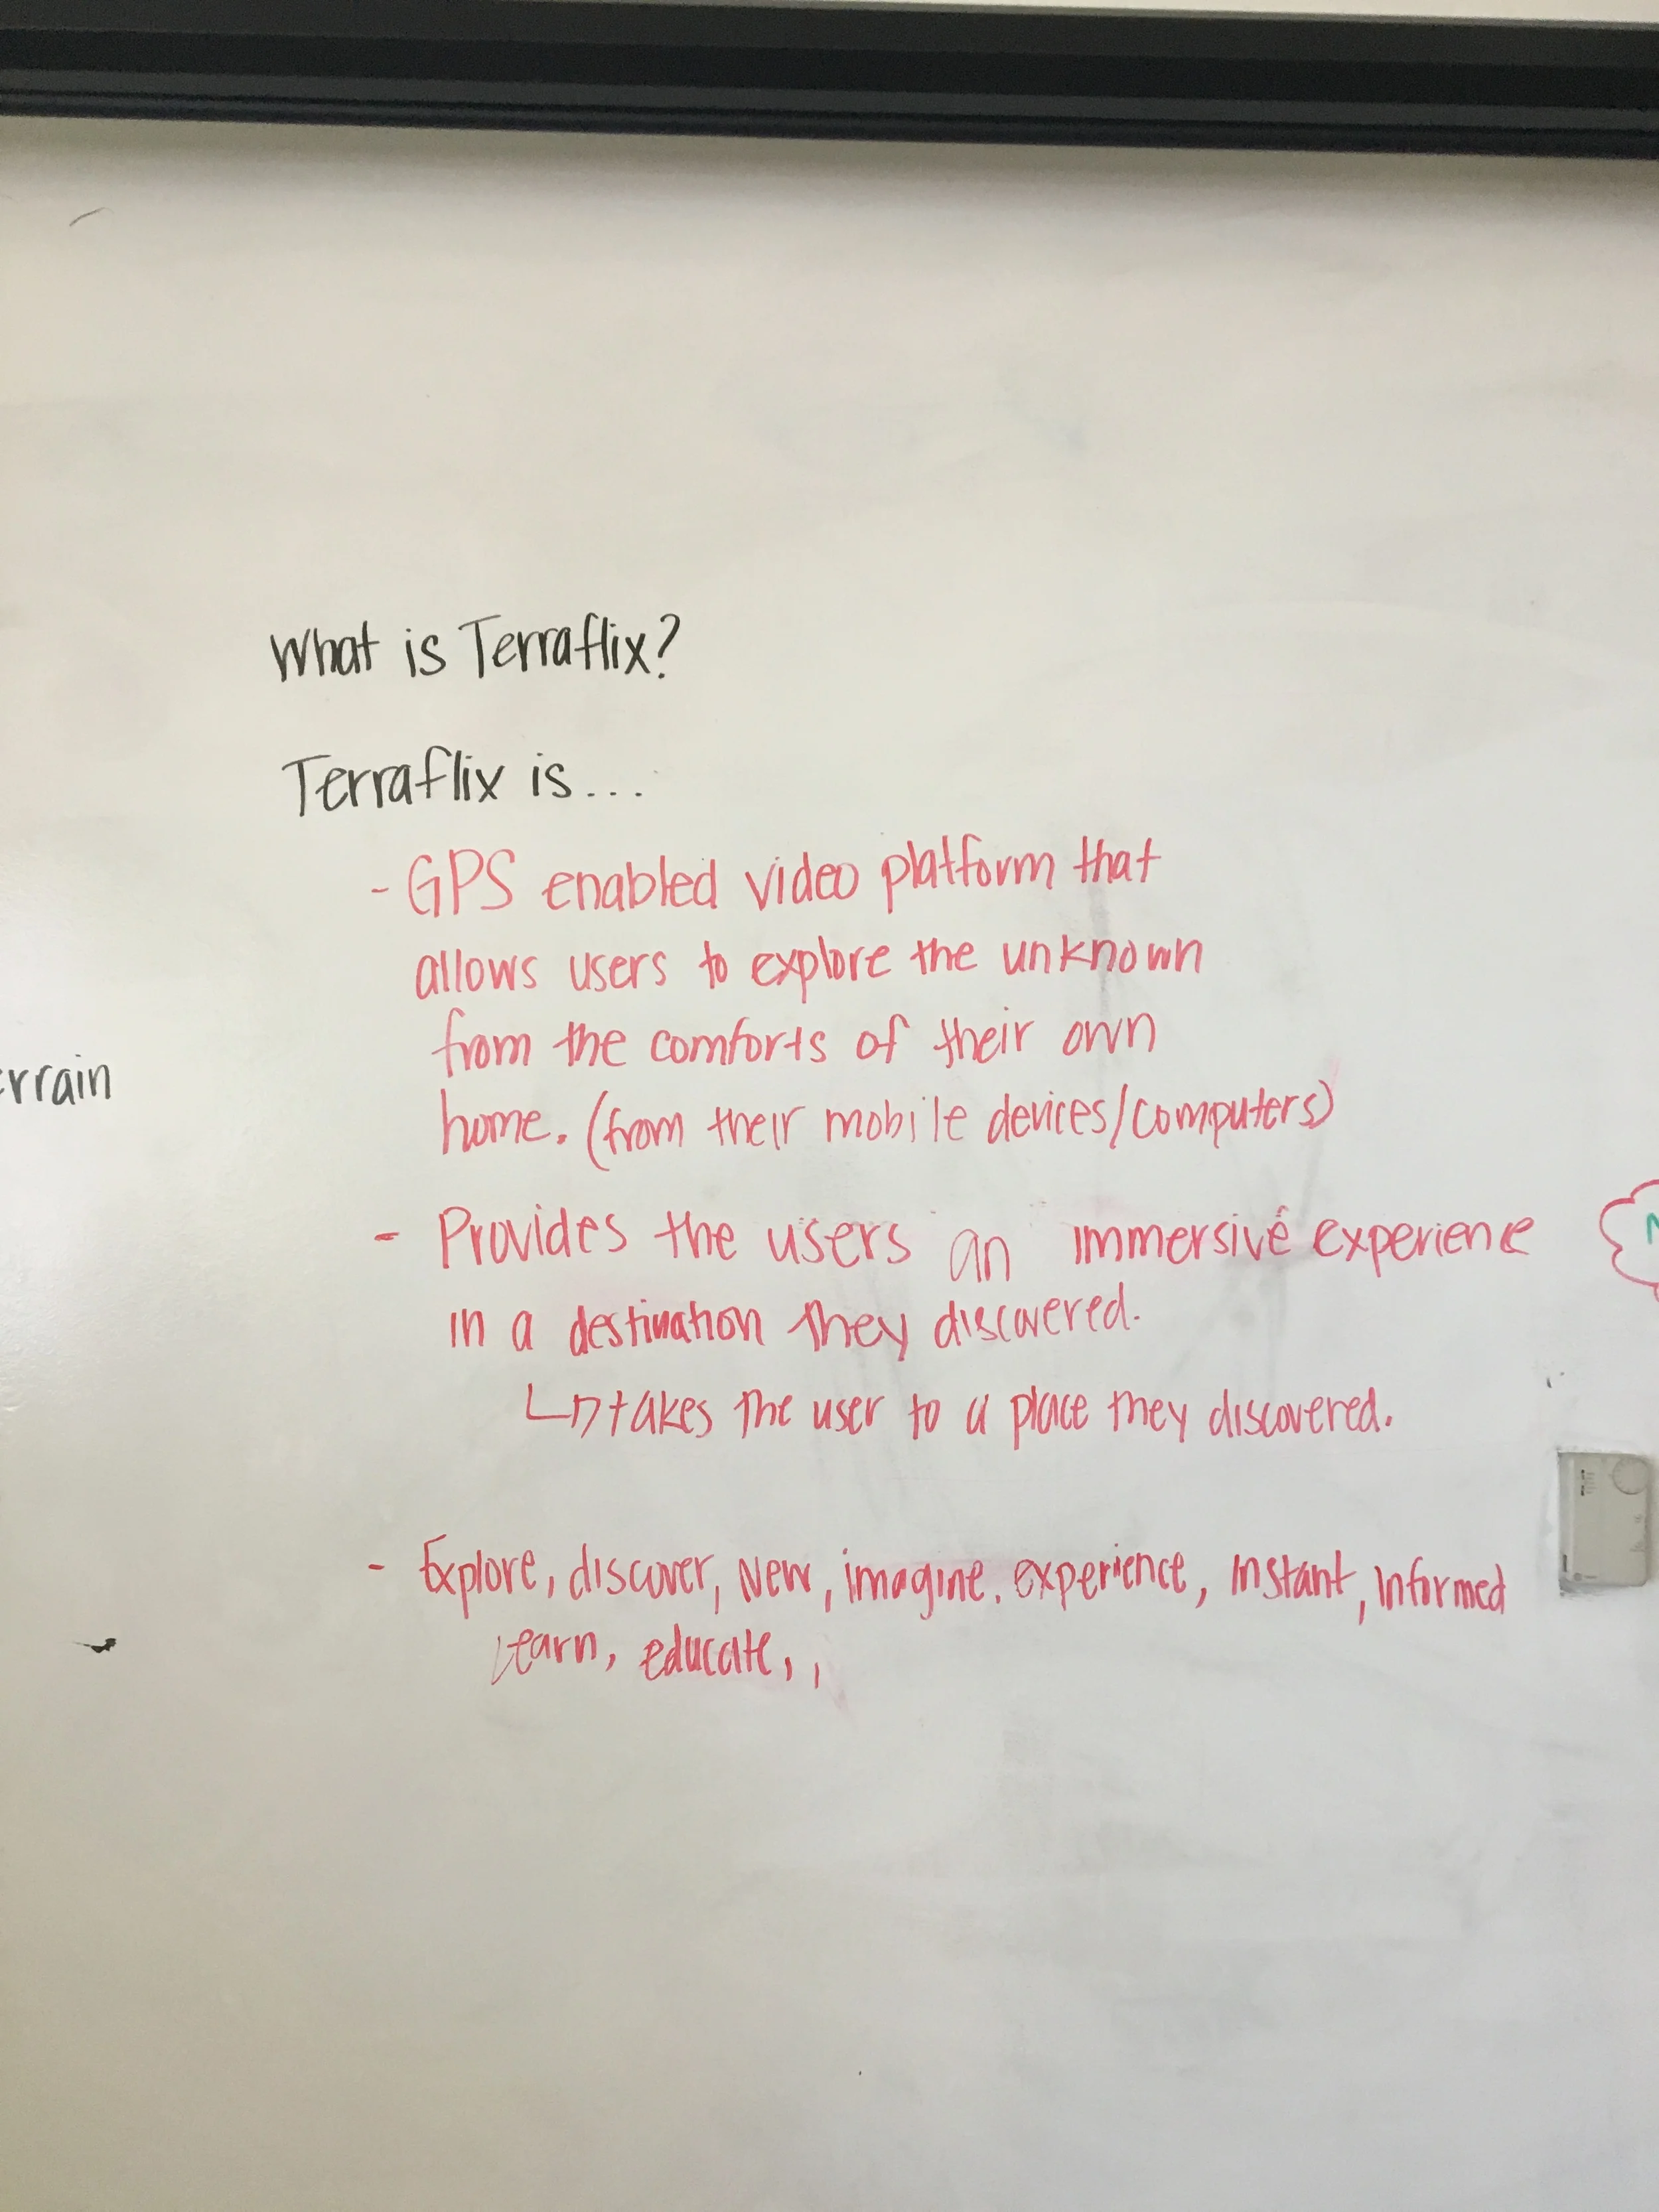 What is Terraflix?
Terraflix is...
- GPS enabled video platform that
allows users to explore the unknown
from the comforts of their own
home. (from their mobile devices/computers)
rrain
- Provides the users an immersive experience
in a destination they discovered.
↳ takes the user to a place they discovered.
- Explore, discover, New, imagine, experience, Instant, Informed
Learn, educate, ,